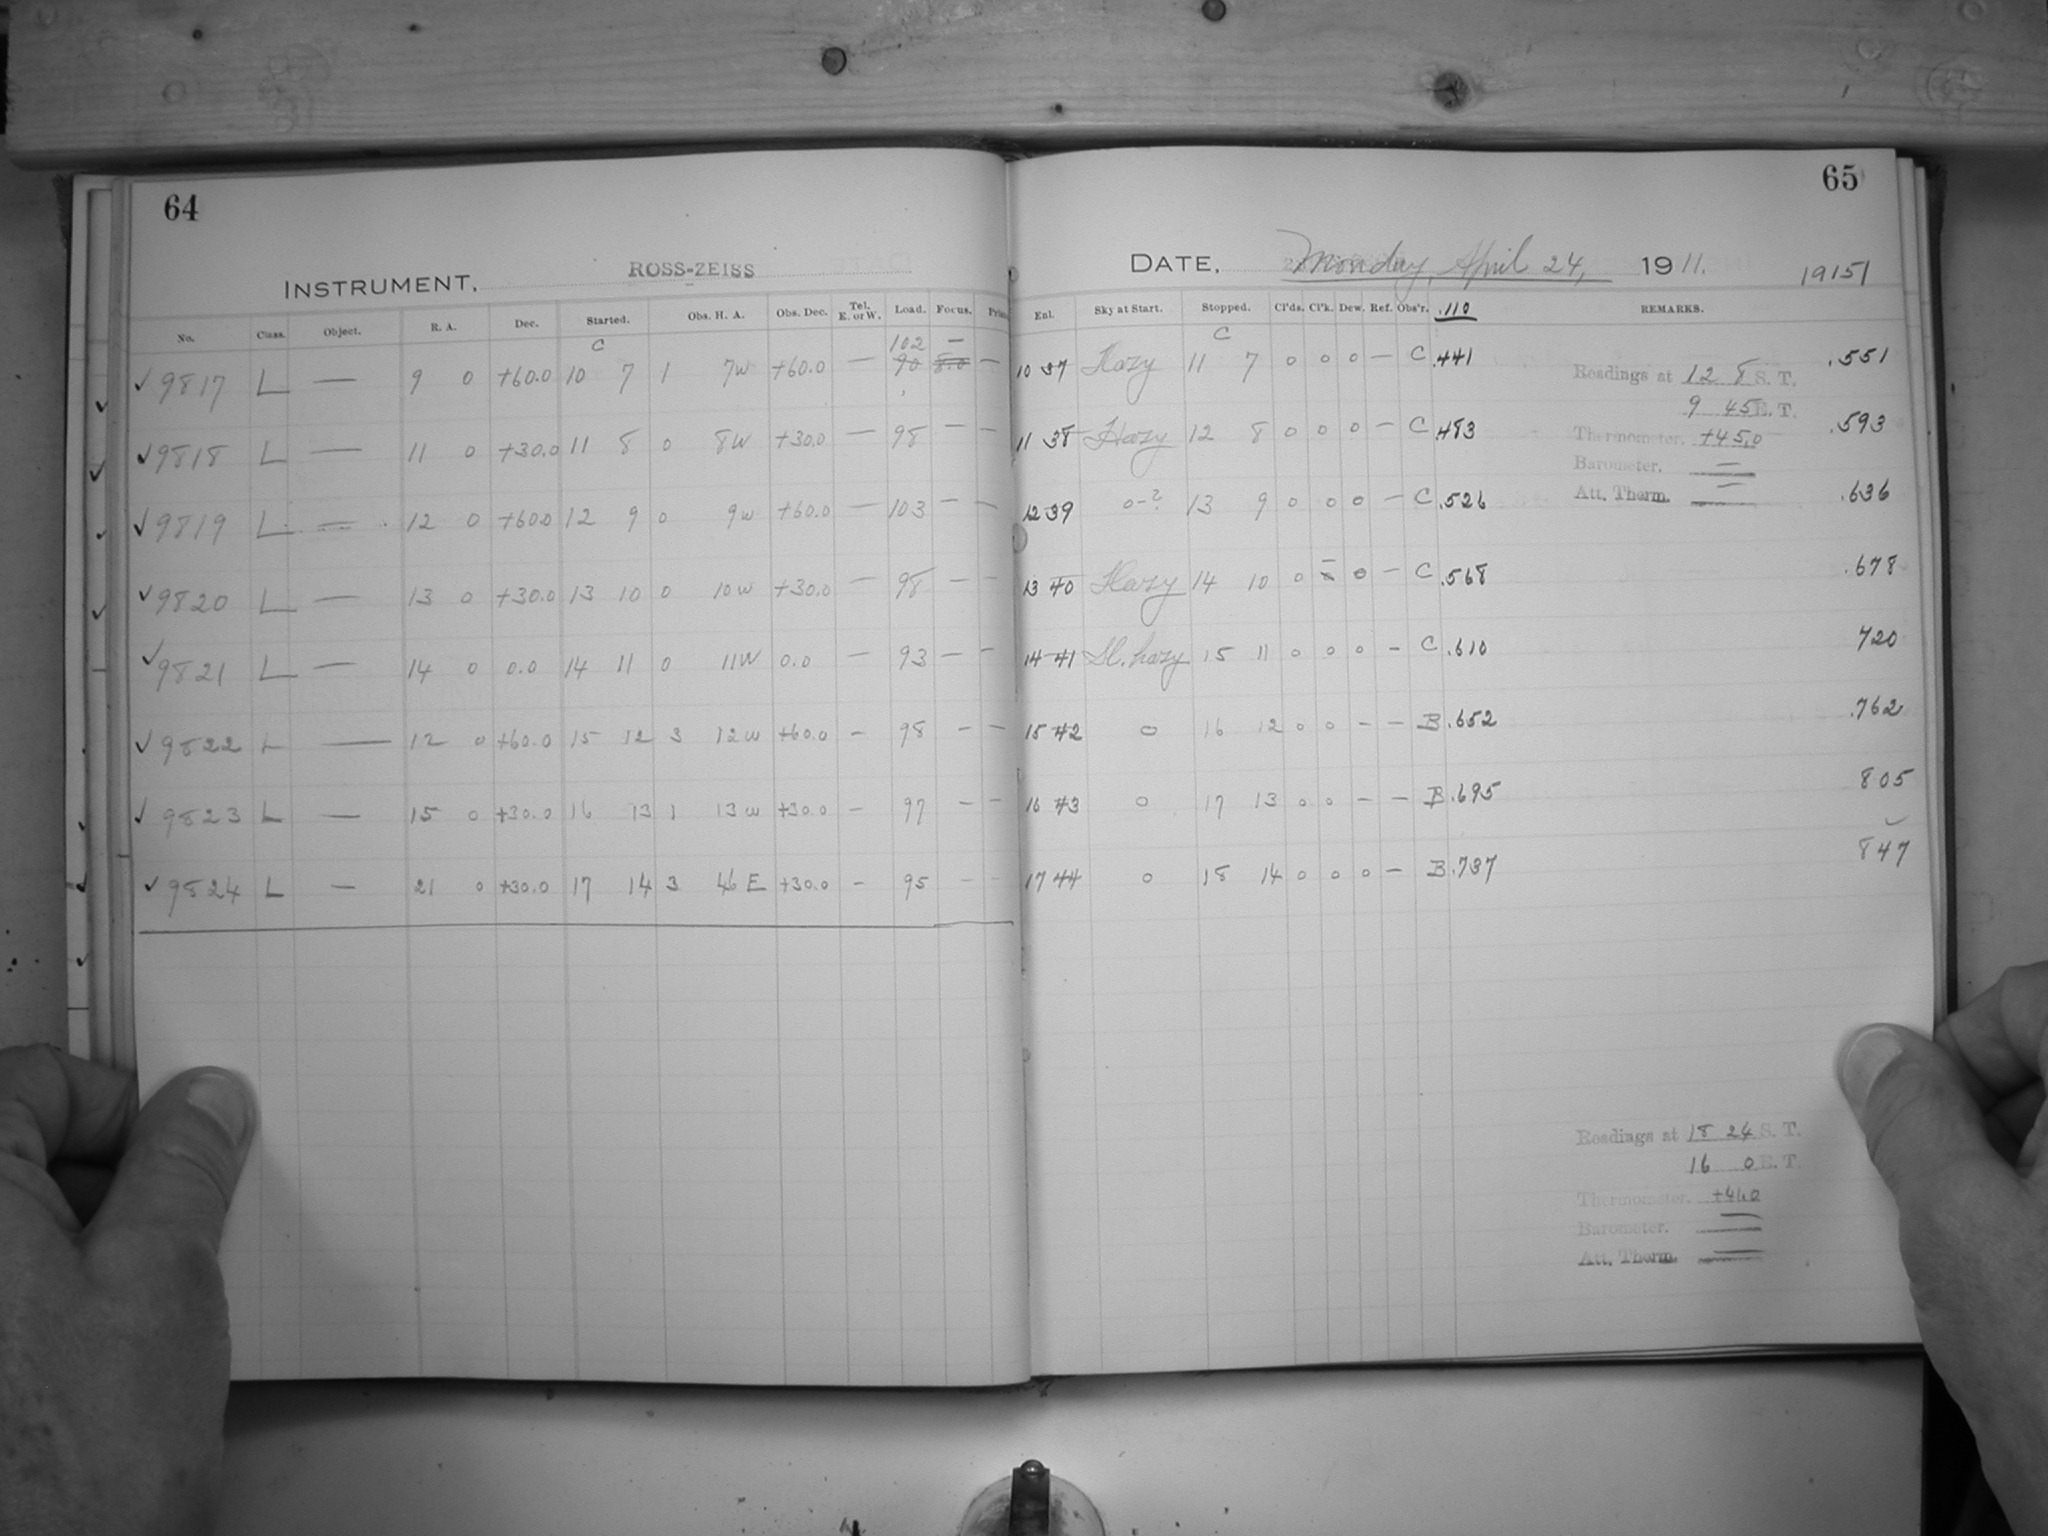 64
INSTRUMENT, ROSS-ZEISS
No. Class. Object. R. A. Dec. Started. Obs. H. A. Obs. Dec. Tel. E. or W. Load. Focus.
C 102 —
✓ 9817 L — 9 0 +60.0 10 7 1 7w +60.0 — 90 8.0 —
✓ 9818 L — 11 0 +30.0 11 8 0 8w +30.0 — 98 — —
✓ 9819 L — 12 0 +60.0 12 9 0 9w +60.0 — 103 — —
✓ 9820 L — 13 0 +30.0 13 10 0 10w +30.0 — 98 — —
✓ 9821 L — 14 0 0.0 14 11 0 11W 0.0 — 93 — —
✓ 9822 L — 12 0 +60.0 15 12 3 12w +60.0 — 98 — —
✓ 9823 L — 15 0 +30.0 16 13 1 13w +30.0 — 97 — —
✓ 9824 L — 21 0 +30.0 17 14 3 46 E +30.0 — 95 — —
65
DATE, Monday, April 24, 1911. 19151
Exl. Sky at Start. Stopped. Cl'ds. Cl'k. Dew. Ref. Obs'r. .110 REMARKS.
C
10 37 Hazy 11 7 0 0 0 — C .441 .551
11 38 Hazy 12 8 0 0 0 — C .483 .593
12 39 0-? 13 9 0 0 0 — C .526 .636
13 40 Hazy 14 10 0 — 0 — C .568 .678
14 41 Sl. hazy 15 11 0 0 0 — C .610 720
15 42 0 16 12 0 0 — — B .652 .762
16 43 0 17 13 0 0 — — B .695 805
17 44 0 18 14 0 0 0 — B .737 847
Readings at 12 8 S. T.
9 45 E. T.
Thermometer. +45.0
Barometer. —
Att. Therm. —
Readings at 18 24 S. T.
16 0 E. T.
Thermometer. +41.0
Barometer. —
Att. Therm. —